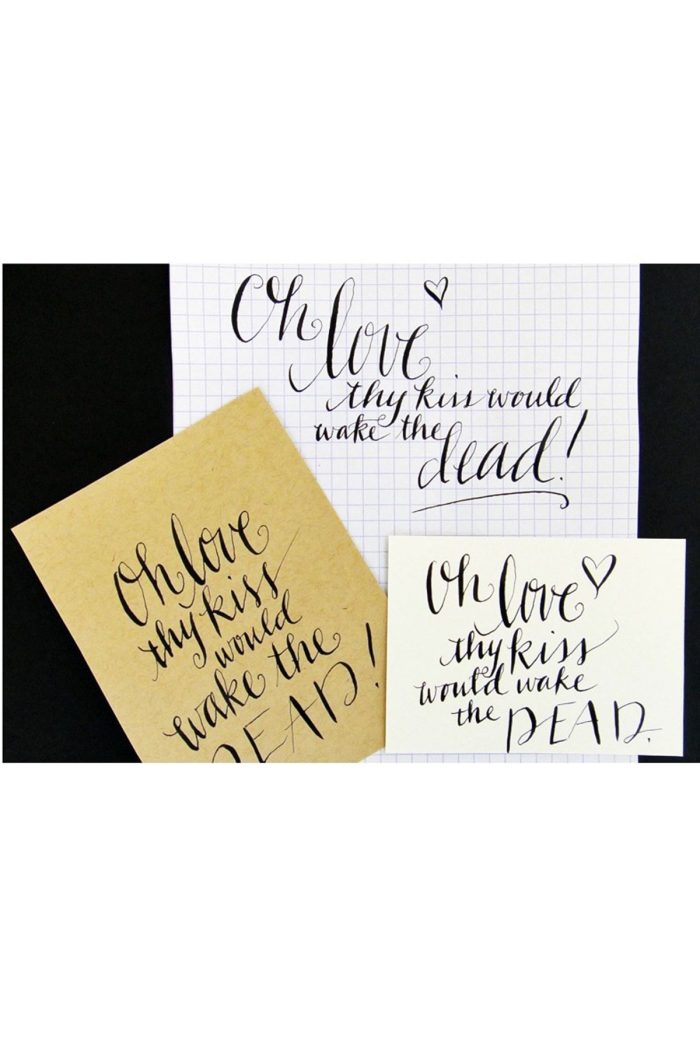 Oh love
thy kiss would
wake the
dead!
Oh love
thy kiss
would
wake the
DEAD!
Oh love
thy kiss
would wake
the DEAD.